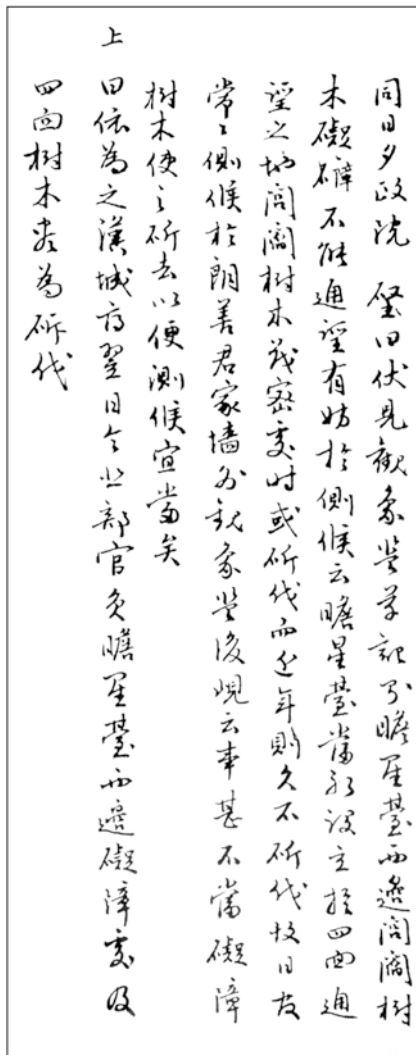 同日夕政院 啓曰伏見觀象監草記則瞻星臺西邊閭閻樹
木礙障不能通望有妨於測候云瞻星臺當初設立於四面通
望之地閭閻樹木茂密處時或斫伐而近年則久不斫伐故日官
常常測候於朗善君家墻外觀象監後峴云事甚不當礙障
樹木使之斫去以便測候宜當矣
上曰依爲之漢城府翌日令北部官員瞻星臺西邊礙障處及
四面樹木盡爲斫伐